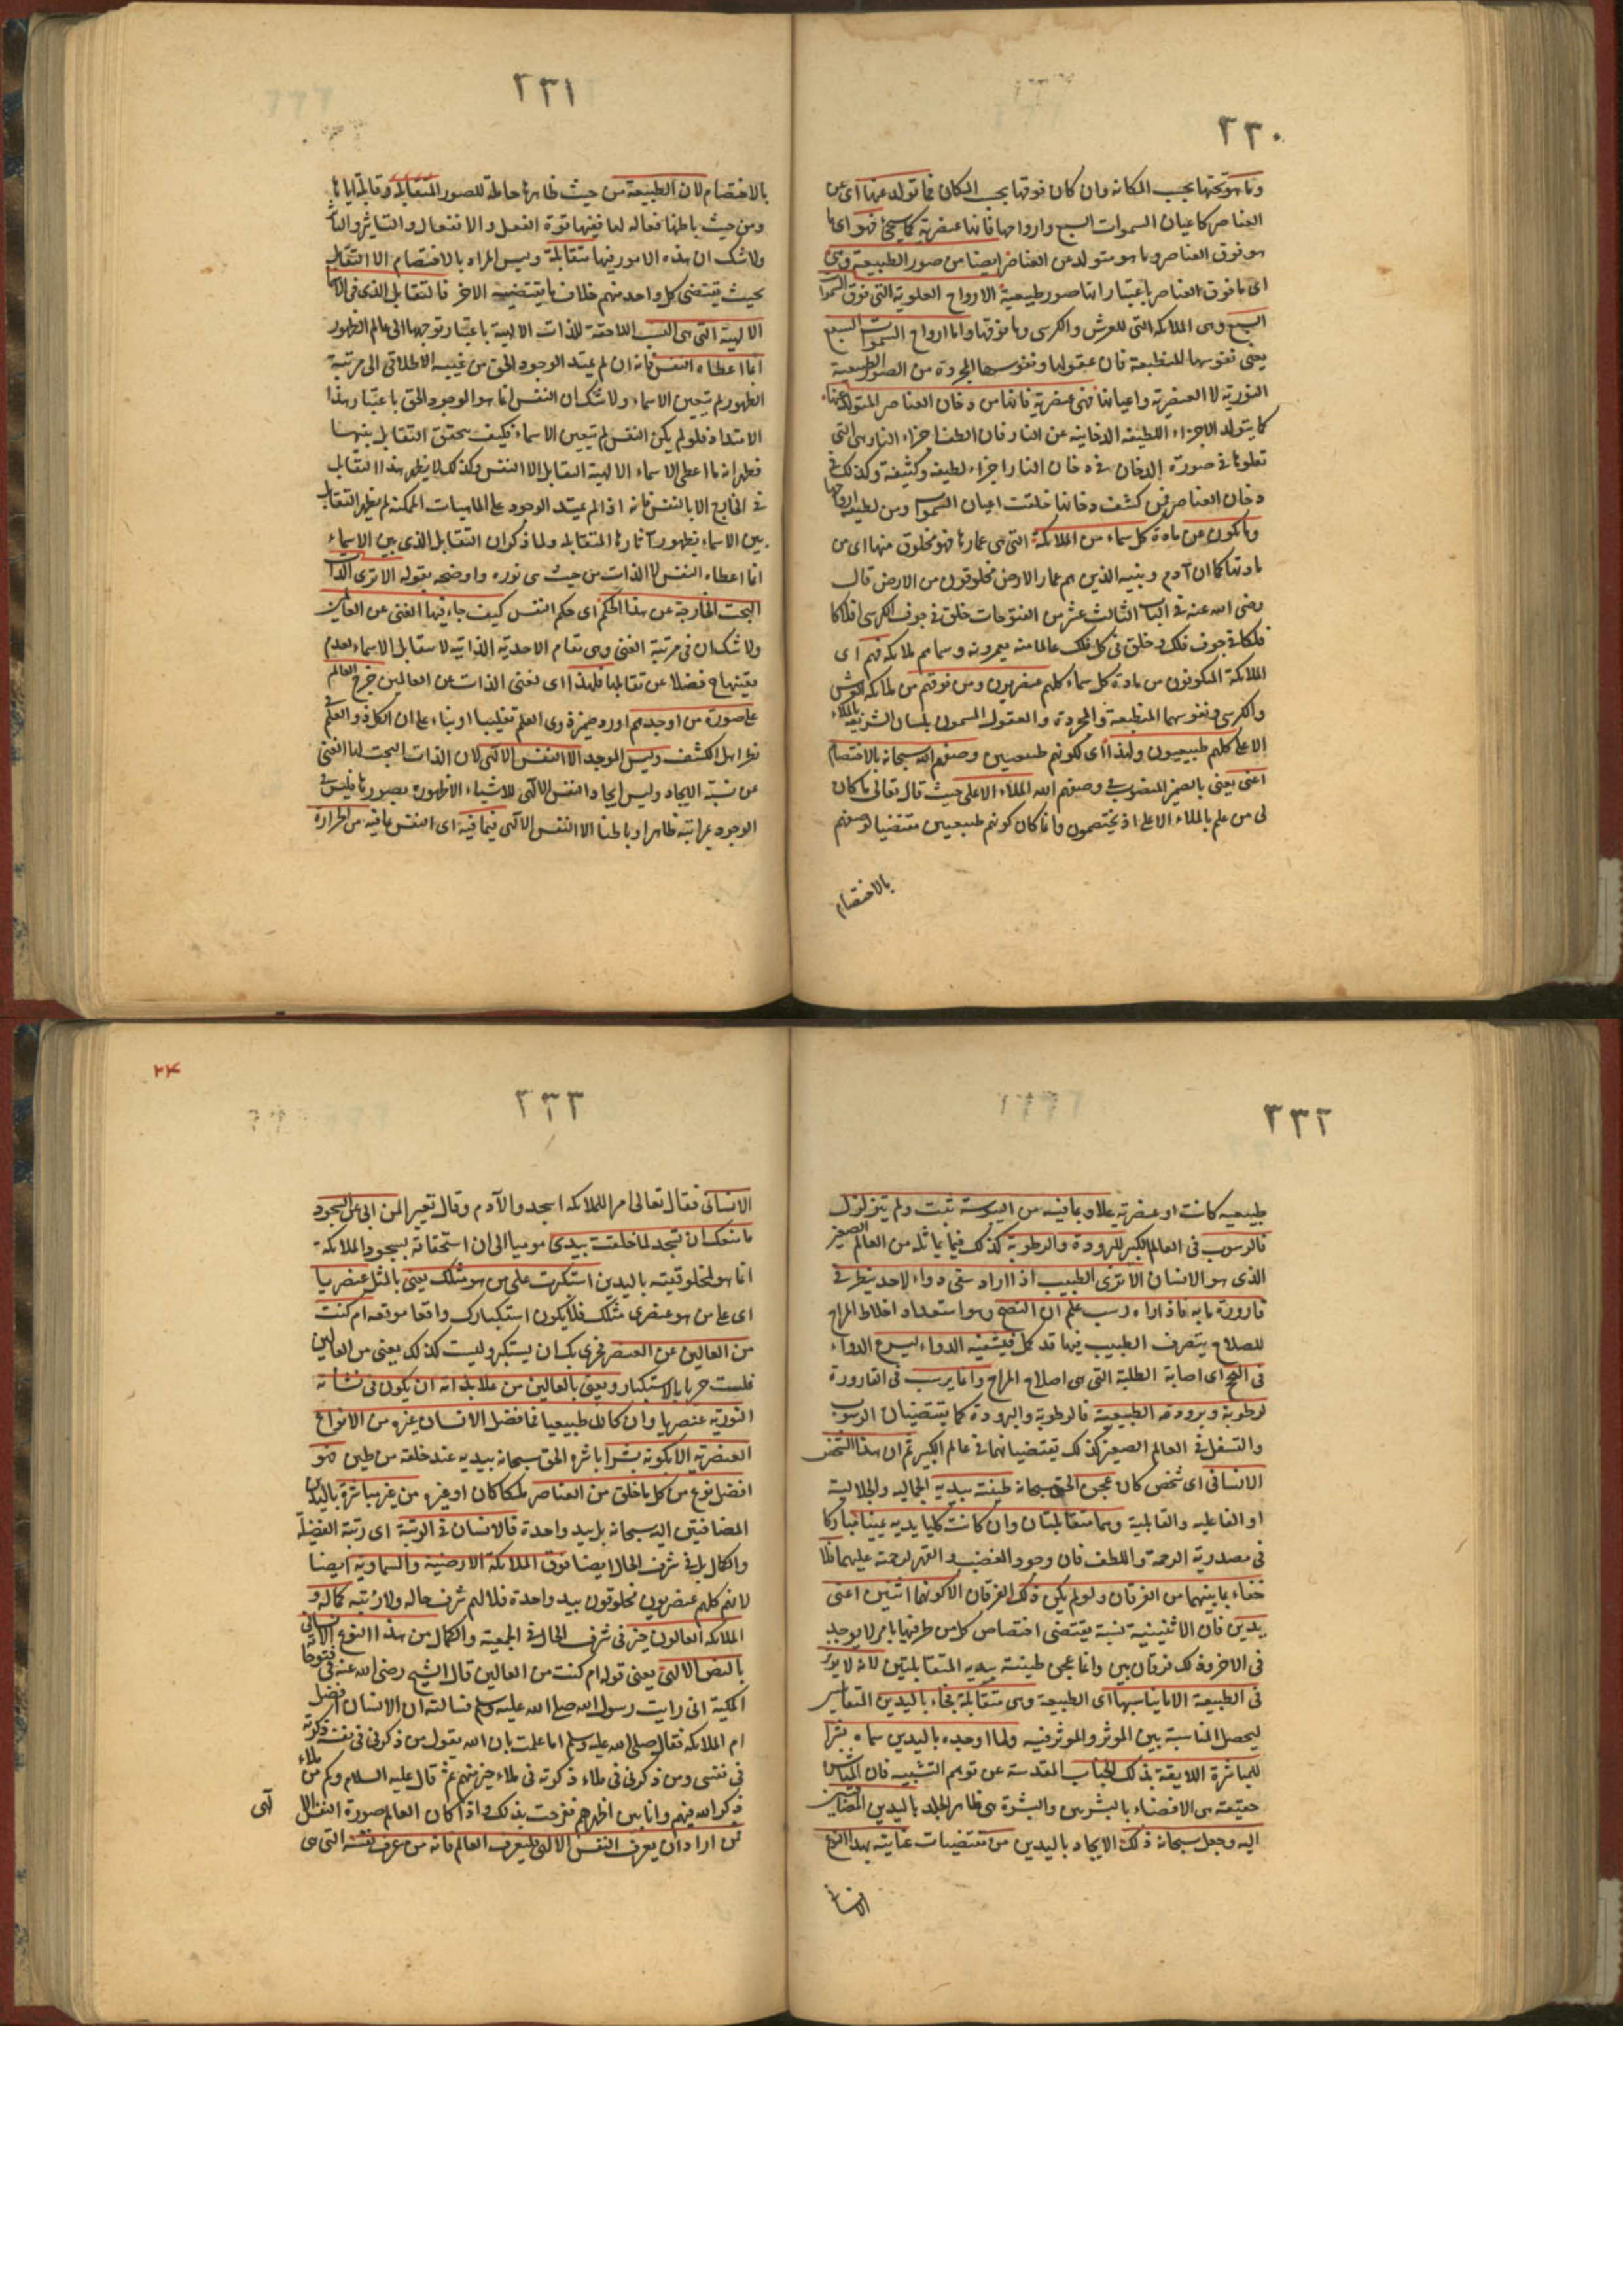 ٢٣٠
وما هو تحتها بحسب المكانة وان كان فوقها بحسب المكان فما تولد عنها اى عن
العناصر كاعيان السموات السبع وارواحها فانها عنصرية كما سيجئ فهو اى ما
هو فوق العناصر وما هو متولد عن العناصر ايضا من صور الطبيعة وهى
اى ما فوق العناصر باعتبار انها صور طبيعية الارواح العلوية التى فوق السموات
السبع وهى الملائكة التى للعرش والكرسى وما فوقها واما ارواح السموات السبع
يعنى نفوسها المنطبعة فان عقولها ونفوسها المجردة من الصور الطبيعية
النورية لا العنصرية واعيانها فهى عنصرية فانها من دخان العناصر المتولد عنها
كما يتولد الاجزاء اللطيفة الدخانية عن النار فان الطف اجزاء النار هى التى
تعلوها فى صورة الدخان فى دخان النار اجزاء لطيفة وكثيفة وكذلك فى
دخان العناصر فمن كشف دخانها خلقت اعيان السموات ومن لطيفه ارواحها
وما تكون عن مادة كل سماء من الملائكة التى هى عمارها فهو مخلوق منها اى من
مادتها كما ان آدم وبنيه الذين هم عمار الارض مخلوقون من الارض قال
رضى الله عنه فى الباب الثالث عشر من الفتوحات خلق فى جوف الكرسى افلاكا
فلكا فى جوف فلك وخلق فى كل فلك عالما منه يعمرونه وسماهم ملائكة فهم اى
الملائكة المتكونون من مادة كل سماء كلهم عنصريون ومن فوقهم من ملائكة العرش
والكرسى ونفوسهما المنطبعة والمجردة والعقول المسمون بلسان الشريعة بالملاء
الاعلى كلهم طبيعيون ولهذا اى لكونهم طبيعيين وصفهم الله سبحانه بالاختصام
اعنى يعنى بالضمير المنصوب فى وصفهم الله الملاء الاعلى حيث قال تعالى ما كان
لى من علم بالملاء الاعلى اذ يختصمون وانما كان كونهم طبيعيين مقتضيا لوصفهم
بالاختصام
٢٣١
بالاختصام لان الطبيعة من حيث ظاهرها حاملة للصور المتقابلة وقابلة اياها
ومن حيث باطنها فعالة لها ففيها قوة الفعل والانفعال والتاثير والتأثر
ولا شك ان هذه الامور فيها متقابلة وليس المراد بالاختصام الا التقابل
بحيث يقتضى كل واحد منهم خلاف ما يقتضيه الاخر فالتقابل الذى فى الاسماء
الالهية التى هى النسب اللاحقة للذات الالهية باعتبار توجهها الى عالم الظهور
انما اعطاه النفس فانه ان لم يمتد الوجود الحق من غيبه الاطلاقى الى مرتبة
الظهور لم يتعين الاسماء ولا شك ان النفس انما هو الوجود الحق باعتبار هذا
الامتداد فلو لم يكن النفس لم يتعين الاسماء فكيف يتحقق التقابل بينها
فظهر انه ما اعطى الاسماء الالهية التقابل الا النفس وكذلك لا يظهر هذا التقابل
فى الخارج الا بالنفس فانه اذا لم يمتد الوجود على الماهيات الممكنة لم يظهر التقابل
بين الاسماء بظهور آثارها المتقابلة ولما ذكر ان التقابل الذى بين الاسماء
انما اعطاه النفس لا الذات من حيث هى نوره واوضحه بقوله الا ترى الذات
البحت الخارجة عن هذا الحكم اى حكم النفس كيف جاء فيها الغنى عن العالمين
ولا شك ان فى مرتبة الغنى وهى مقام الاحدية الذاتية لا تتقابل الاسماء لعدم
تعينها فضلا عن تقابلها فلهذا اى لغنى الذات عن العالمين خرج العالم
على صورة من اوجدهم اورد ضمير ذوى العلم تغليبا او بناء على ان الكل ذو العلم
نظر اهل الكشف وليس الموجد الا النفس الالهى لان الذات البحت لها الغنى
عن نسبة الايجاد وليس ايجاد النفس الالهى للاشياء الا ظهوره بصورها فليس فى
الوجود مراتبه ظاهرا وباطنا الا النفس الالهى فبما فيه اى النفس بما فيه من الحرارة
٢٣٢
طبيعية كانت او عنصرية علا وبما فيه من اليبوسة ثبت ولم يتزلزل
فالرسوب فى العالم الكبير للبرودة والرطوبة كذلك فيما يماثله من العالم الصغير
الذى هو الانسان الا ترى الطبيب اذا اراد سقى دواء لاحد ينظر فى
قارورة مائه فاذا راه رسب علم ان النضج وهو استعداد اخلاط المزاج
للصلاح بتصرف الطبيب فيها قد كمل فيسقيه الدواء ليسرع الدواء
فى النجح اى اصابة الطلبة التى هى اصلاح المزاج وانما يرسب فى القارورة
لرطوبة وبرودته الطبيعية فالرطوبة والبرودة كما يقتضيان الرسوب
والتسفل فى العالم الصغير كذلك تقتضيانهما فى عالم الكبير ثم ان هذا الشخص
الانسانى اى شخص كان عجن الحق سبحانه طينته بيديه الجمالية والجلالية
او الفاعلية والقابلية وهما متقابلتان وان كانت كلتا يديه يمينا مباركا
فى مصدرية الرحمة واللطف فان وجود الغضب والقهر لرحمة عليهما فلا
خفاء بما بينهما من الفرقان ولو لم يكن ذلك الفرقان الا كونهما اثنين اعنى
يدين فان الاثنينية نسبة يقتضى اختصاص كل من طرفيها بامر لا يوجد
فى الاخر وذلك فرقان بين وانما عجن طينته بيديه المتقابلتين لانه لا يؤثر
فى الطبيعة الا ما يناسبها اى الطبيعة وهى متقابلة فجاء باليدين المتقابلتين
ليحصل المناسبة بين المؤثر والمؤثر فيه ولما اوجده باليدين سماه بشرا
للمباشرة اللايقة بذلك الجناب المقدسة عن توهم التشبيه فان المباشرة
حقيقته هى الافضاء بالبشرتين والبشرة هى ظاهر الجلد باليدين المضافتين
اليه وجعل سبحانه ذلك الايجاد باليدين من مقتضيات عنايته بهذا النوع
الانسانى
٢٣٣
٢٣
الانسانى فقال تعالى امر الملائكة اسجدوا لآدم وقال تعييرا لمن ابى عن السجود
ما منعك ان تسجد لما خلقت بيدى موميا الى ان استحقاقه لسجود الملائكة
انما هو لمخلوقيته باليدين استكبرت على من هو مثلك يعنى بالمثل عنصريا
اى على من هو عنصرى مثلك فلا يكون استكبارك واقعا موقعه ام كنت
من العالين عن العنصر فحرى بك ان يستكبر ولست كذلك يعنى من العالين
فلست حريا بالاستكبار ويعنى بالعالين من علا بذاته ان يكون فى نشاته
النورية عنصريا وان كان طبيعيا فما فضل الانسان غيره من الانواع
العنصرية الا بكونه بشرا باشره الحق سبحانه بيديه عند خلقه من طين فهو
افضل نوع من كل ما خلق من العناصر ملكا كان او غيره من غير مباشرة باليدين
المضافتين اليه سبحانه بل بيد واحدة فالانسان فى الرتبة اى رتبة الفضيلة
والكمال بل فى شرف الحال ايضا فوق الملائكة الارضية والسماوية ايضا
لانهم كلهم عنصريون مخلوقون بيد واحدة فلا لهم شرف حاله ولا رتبة كماله و
الملائكة العالون خير فى شرف الحال فى الجمعية والكمال من هذا النوع الانسانى
بالنص الالهى يعنى قوله ام كنت من العالين قال الشيخ رضى الله عنه فى فتوحاته
المكية انى رايت رسول الله صلى الله عليه وسلم فسالته ان الانسان افضل
ام الملائكة فقال صلى الله عليه وسلم اما علمت بان الله يقول من ذكرنى فى نفسه ذكرته
فى نفسى ومن ذكرنى فى ملاء ذكرته فى ملاء خير منهم ثم قال عليه السلام وكم من ملاء
ذكر الله فيهم وانا بين اظهرهم ففرحت بذلك واذا كان العالم صورة النفس الا
لهى
فمن اراد ان يعرف النفس الالهى فليعرف العالم فانه من عرف نفسه التى هى